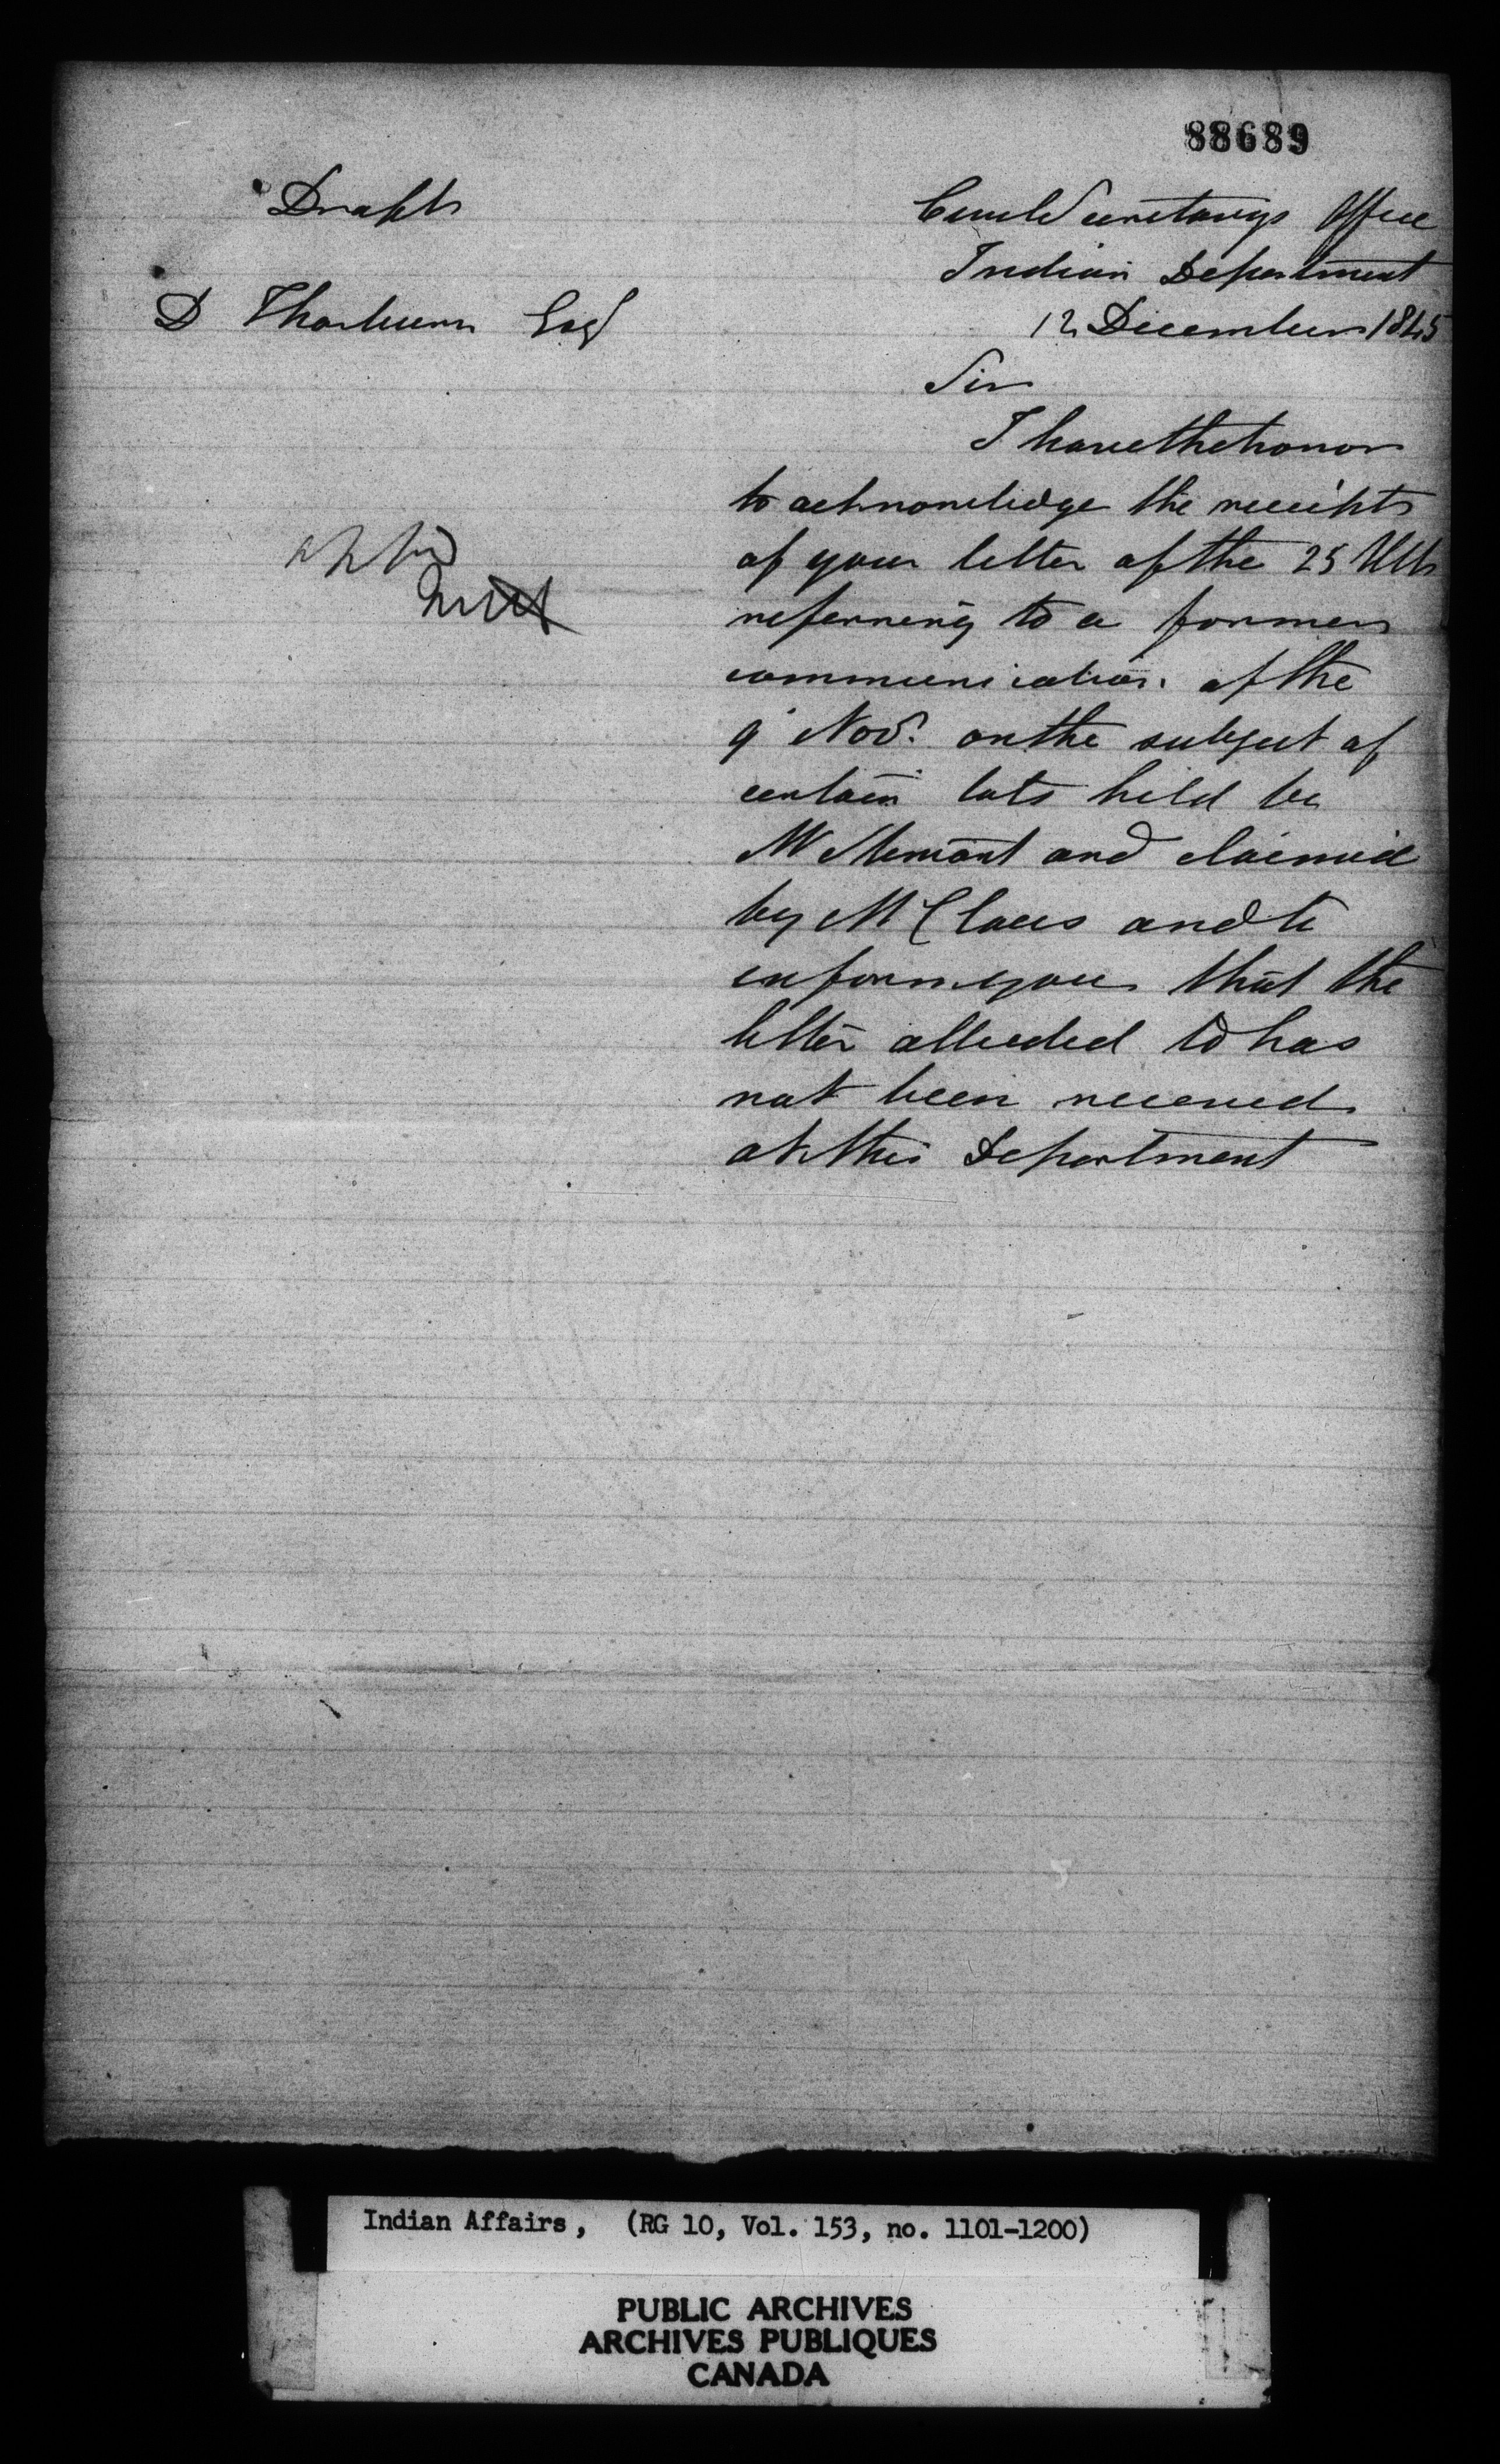 88689
Draft
Civil Secretarys Office
Indian Department
D Thorburn Esq
12 December 1845
Sir
I have the honor
to acknowledge the receipt
of your letter of the 25 Ult
referring to a former
communication of the
9 Nov. on the subject of
certain lots held be
Mr Stewart and claimed
by Mr Claus and to
inform you that the
letter alluded to has
not been received
at this Department
Indian Affairs, (RG 10, Vol. 153, no. 1101-1200)
PUBLIC ARCHIVES
ARCHIVES PUBLIQUES
CANADA